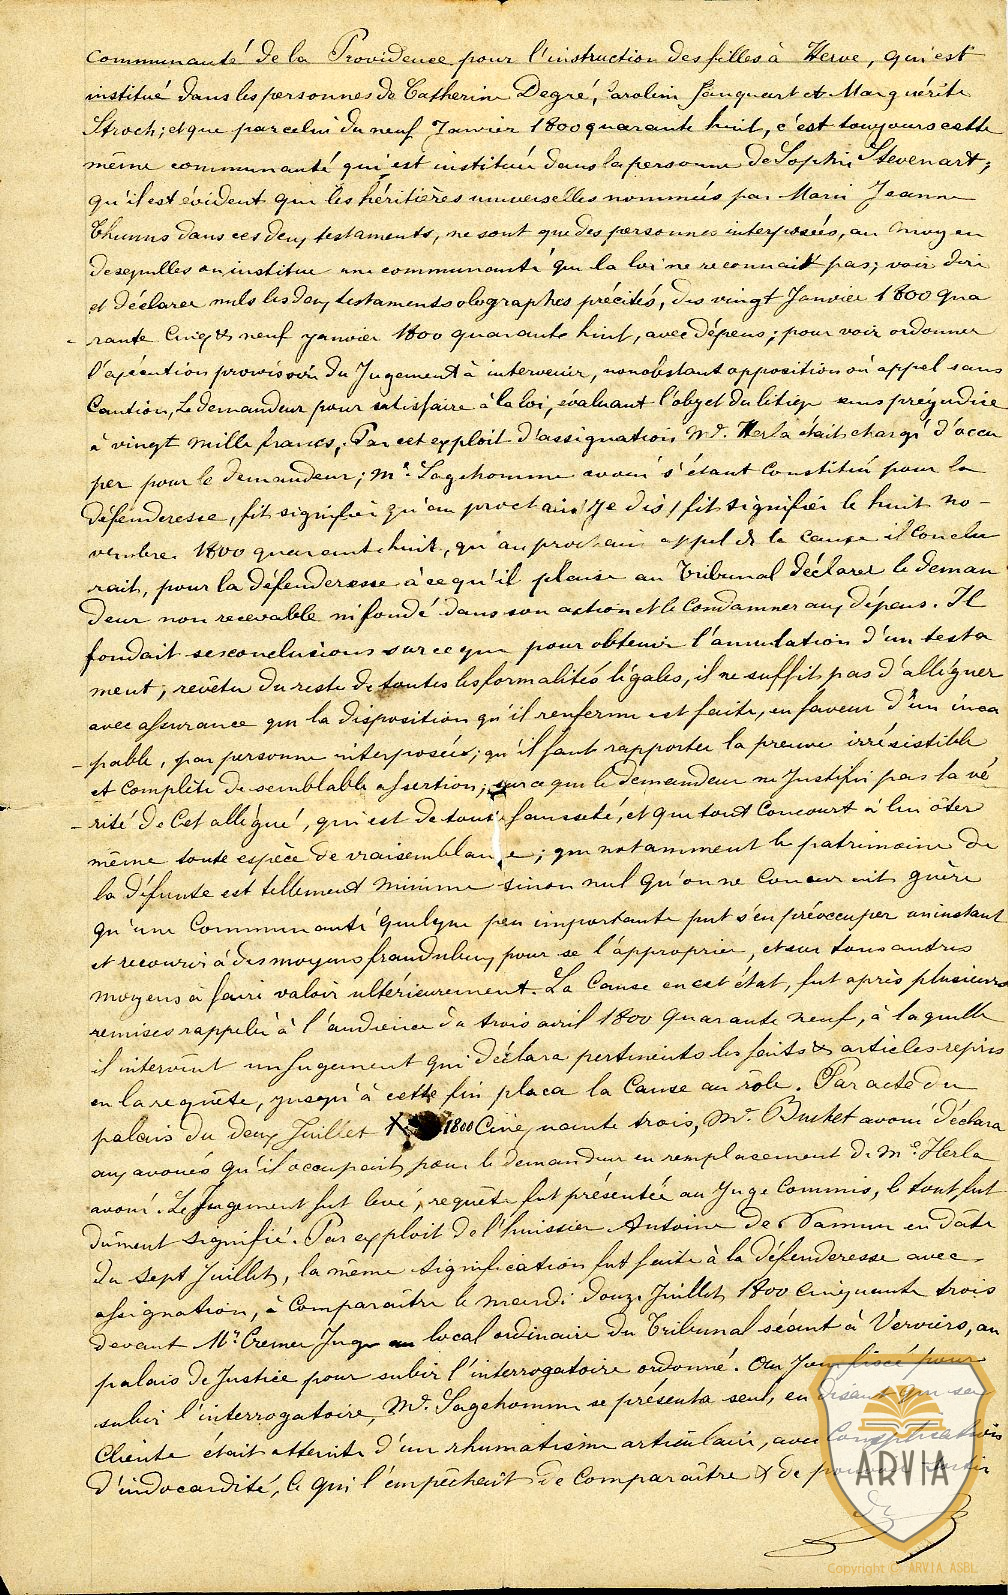 communauté de la Providence pour l'instruction des filles à Herve, qui est
institué dans les personnes de Catherine Degré, Carolin Janquart et Marguérite
Stroch; et que par celui du neuf Janvier 1800 quarante huit, c'est toujours cette
même communauté qui est instituée dans la personne de Sophie Stevenart;
qu'il est évident que les héritières universelles nommées par Marie Jeanne
Thunus dans ces deux testaments, ne sont que des personnes interposées, au moyen
desquelles on institue une communauté que la loi ne reconnait pas; voir dire
et déclarer nuls les deux testaments olographes précités, des vingt Janvier 1800 qua
- rante cinq & neuf janvier 1800 quarante huit, avec dépens; pour voir ordonner
l'exécution provisoire du Jugement à intervenir, nonobstant opposition ou appel sans
Caution, Le demandeur pour satisfaire à la loi, évaluant l'objet du litige sans préjudice
à vingt mille francs. Par cet exploit d'assignation Me. Herla était chargé d'occu
per pour le demandeur; me Sagehomme avoué s'étant constitué pour la
défenderesse, fit signifier qu'au prochain / je dis / fit signifier le huit no-
vembre 1800 quarante huit, qu'au prochain appel de la cause il conclu
rait, pour la défenderesse à ce qu'il plaise au Tribunal déclarer le deman
deur non recevable ni fondé dans son action et le Condamner aux dépens. Il
fondait ses conclusions sur ce que pour obtenir l'annulation d'un testa
ment, revêtu du reste de toutes les formalités légales, il ne suffit pas d'alléguer
avec assurance que la disposition qu'il renferme est faite, en faveur d'un inca
- pable, par personne interposée; qu'il faut rapporter la preuve irrésistible
et complète de semblable assertion; sur ce que le demandeur ne Justifie pas la vé
- rité de Cet allégué, qui est de toute fausseté, et que tout Concourt à lui ôter
même toute espèce de vraisemblance; que notamment le patrimoine de
la défunte est tellement minime sinon nul qu'on ne concevrait guère
qu'une Communauté quelque peu importante put s'en préoccuper un instant
et recourir à des moyens frauduleux pour se l'approprier, et sur tous autres
moyens à faire valoir ultérieurement. La Cause en cet état, fut après plusieurs
remises rappelée à l'audience du trois avril 1800 quarante neuf, à laquelle
il intervint un Jugement qui déclara pertinents les faits & articles repris
en la requête, jusqu'à cette fin plaça la Cause au rôle. Par acte du
palais du deux Juillet 1800 Cinquante trois, Me. Busket avoué déclara
aux avoués qu'il occupait pour le demandeur en remplacement de Me Herla
avoué. Le Jugement fut levé, requête fut présentée au Juge Commis, le tout fut
dûment signifié. Par exploit de l'huissier Antoine de Namur en date
du sept Juillet, la même signification fut faite à la défenderesse avec
assignation, à Comparaître le mardi douze Juillet 1800 cinquante trois
devant Mr. Cremer Juge au local ordinaire du Tribunal séant à Verviers, au
palais de Justice pour subir l'interrogatoire ordonné. Au Jour fixé pour
subir l'interrogatoire, Me. Sagehomme se présenta seul, en disant que sa
Cliente était atteinte d'un rhumatisme articulaire, avec Complications
d'indocardité, ce qui l'empêchait de Comparaître & de pouvoir sortir
de
ARVIA
Copyright © ARVIA ASBL